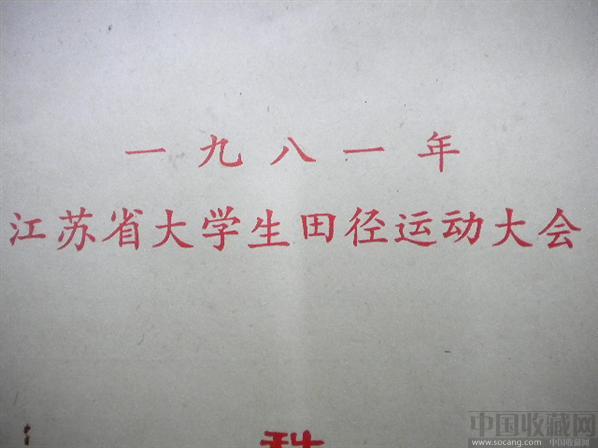 一九八一年
江苏省大学生田径运动大会
中国收藏网
www.socang.com 中国收藏网